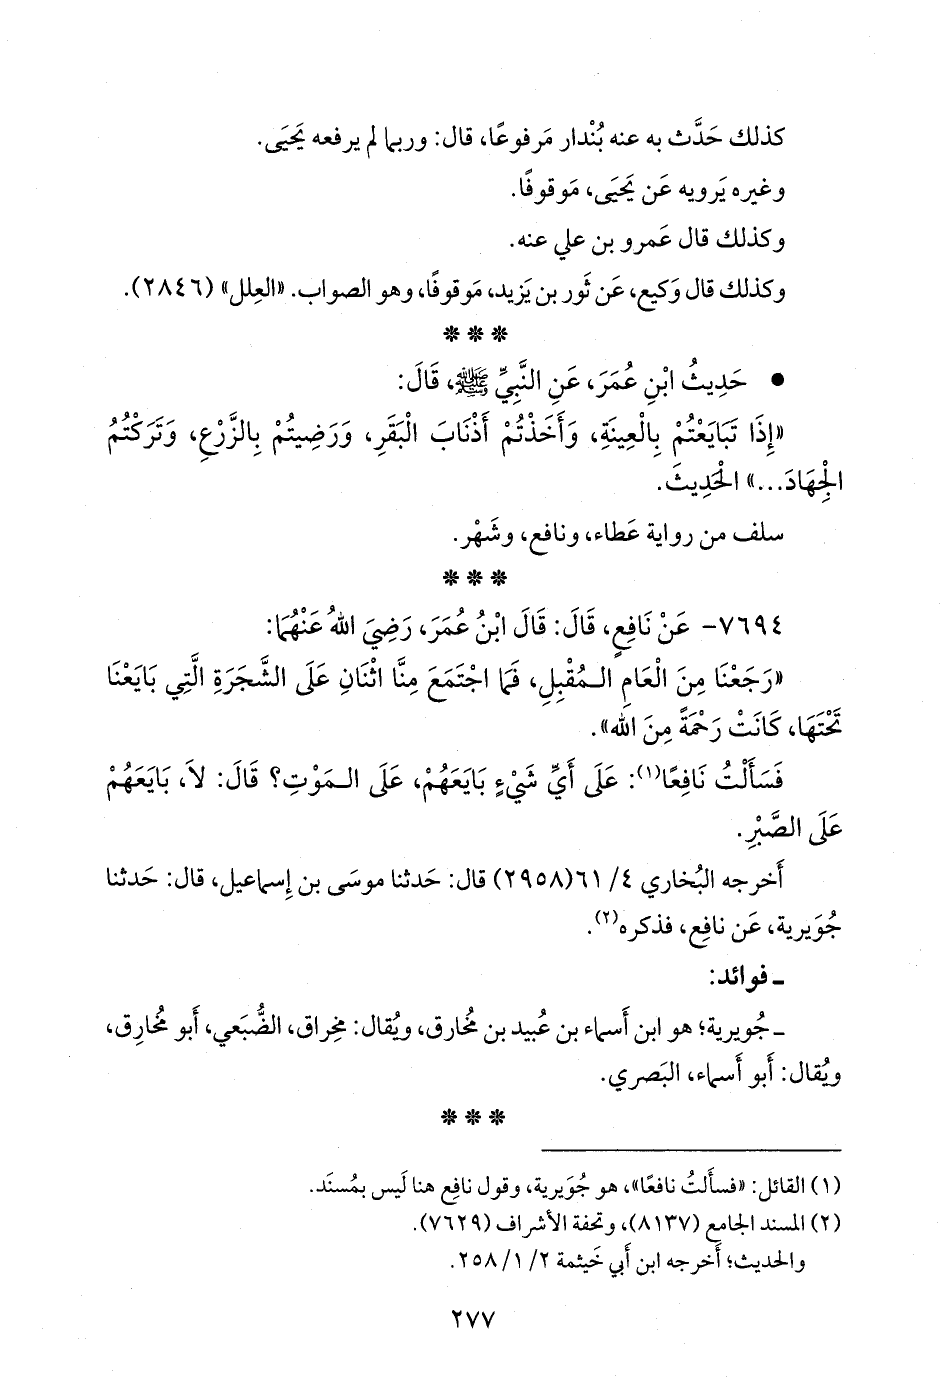 كذلك حَدَّث به عنه بُنْدار مَرفوعًا، قال: وربما لم يرفعه يَحيَى.
وغيره يَرويه عَن يَحيَى، مَوقوفًا.
وكذلك قال عَمرو بن علي عنه.
وكذلك قال وَكيع، عَن ثَور بن يَزيد، مَوقوفًا، وهو الصواب. «العِلل» (٢٨٤٦).
* * *
• حَدِيثُ ابْنِ عُمَرَ، عَنِ النَّبِيِّ ﷺ، قَالَ:
«إِذَا تَبَايَعْتُمْ بِالْعِينَةِ، وَأَخَذْتُمْ أَذْنَابَ الْبَقَرِ، وَرَضِيتُمْ بِالزَّرْعِ، وَتَرَكْتُمُ
الْجِهَادَ...» الْحَدِيثَ.
سلف من رواية عَطاء، ونافع، وشَهْر.
* * *
٧٦٩٤- عَنْ نَافِعٍ، قَالَ: قَالَ ابْنُ عُمَرَ، رَضِيَ اللهُ عَنْهُمَا:
«رَجَعْنَا مِنَ الْعَامِ الْـمُقْبِلِ، فَمَا اجْتَمَعَ مِنَّا اثْنَانِ عَلَى الشَّجَرَةِ الَّتِي بَايَعْنَا
تَحْتَهَا، كَانَتْ رَحْمَةً مِنَ الله».
فَسَأَلْتُ نَافِعًا(١): عَلَى أَيِّ شَيْءٍ بَايَعَهُمْ، عَلَى الـمَوْتِ؟ قَالَ: لَا، بَايَعَهُمْ
عَلَى الصَّبْرِ.
أَخرجه البُخاري ٤/ ٦١(٢٩٥٨) قال: حَدثنا موسَى بن إِسماعيل، قال: حَدثنا
جُوَيرية، عَن نافِع، فذكره(٢).
ـ فوائد:
ـ جُويرية؛ هو ابن أَسماء بن عُبيد بن مُخارق، ويُقال: مِخراق، الضُّبَعي، أَبو مُخارِق،
ويُقال: أَبو أَسماء، البَصري.
* * *
(١) القائل: «فسأَلتُ نافعًا»، هو جُوَيرية، وقول نافِع هنا لَيس بمُسنَد.
(٢) المسند الجامع (٨١٣٧)، وتحفة الأشراف (٧٦٢٩).
والحديث؛ أَخرجه ابن أَبي خَيثمة ٢/ ١/ ٢٥٨.
٢٧٧